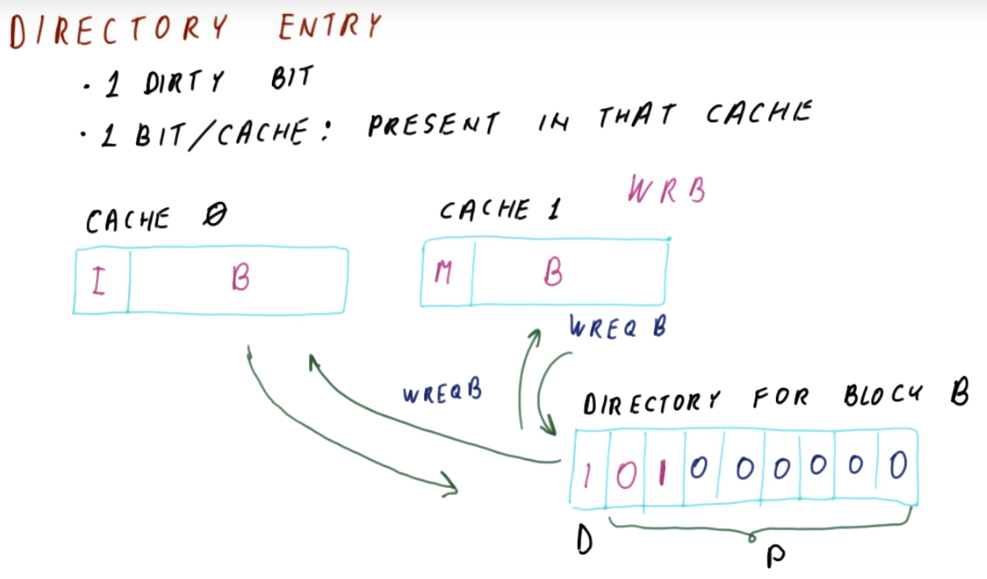 DIRECTORY ENTRY
· 1 DIRTY BIT
· 1 BIT/CACHE: PRESENT IN THAT CACHE
WRB
CACHE 0
CACHE 1
I B
M B
WREQ B
WREQB
DIRECTORY FOR BLOCK B
1 0 1 0 0 0 0 0 0
D
P